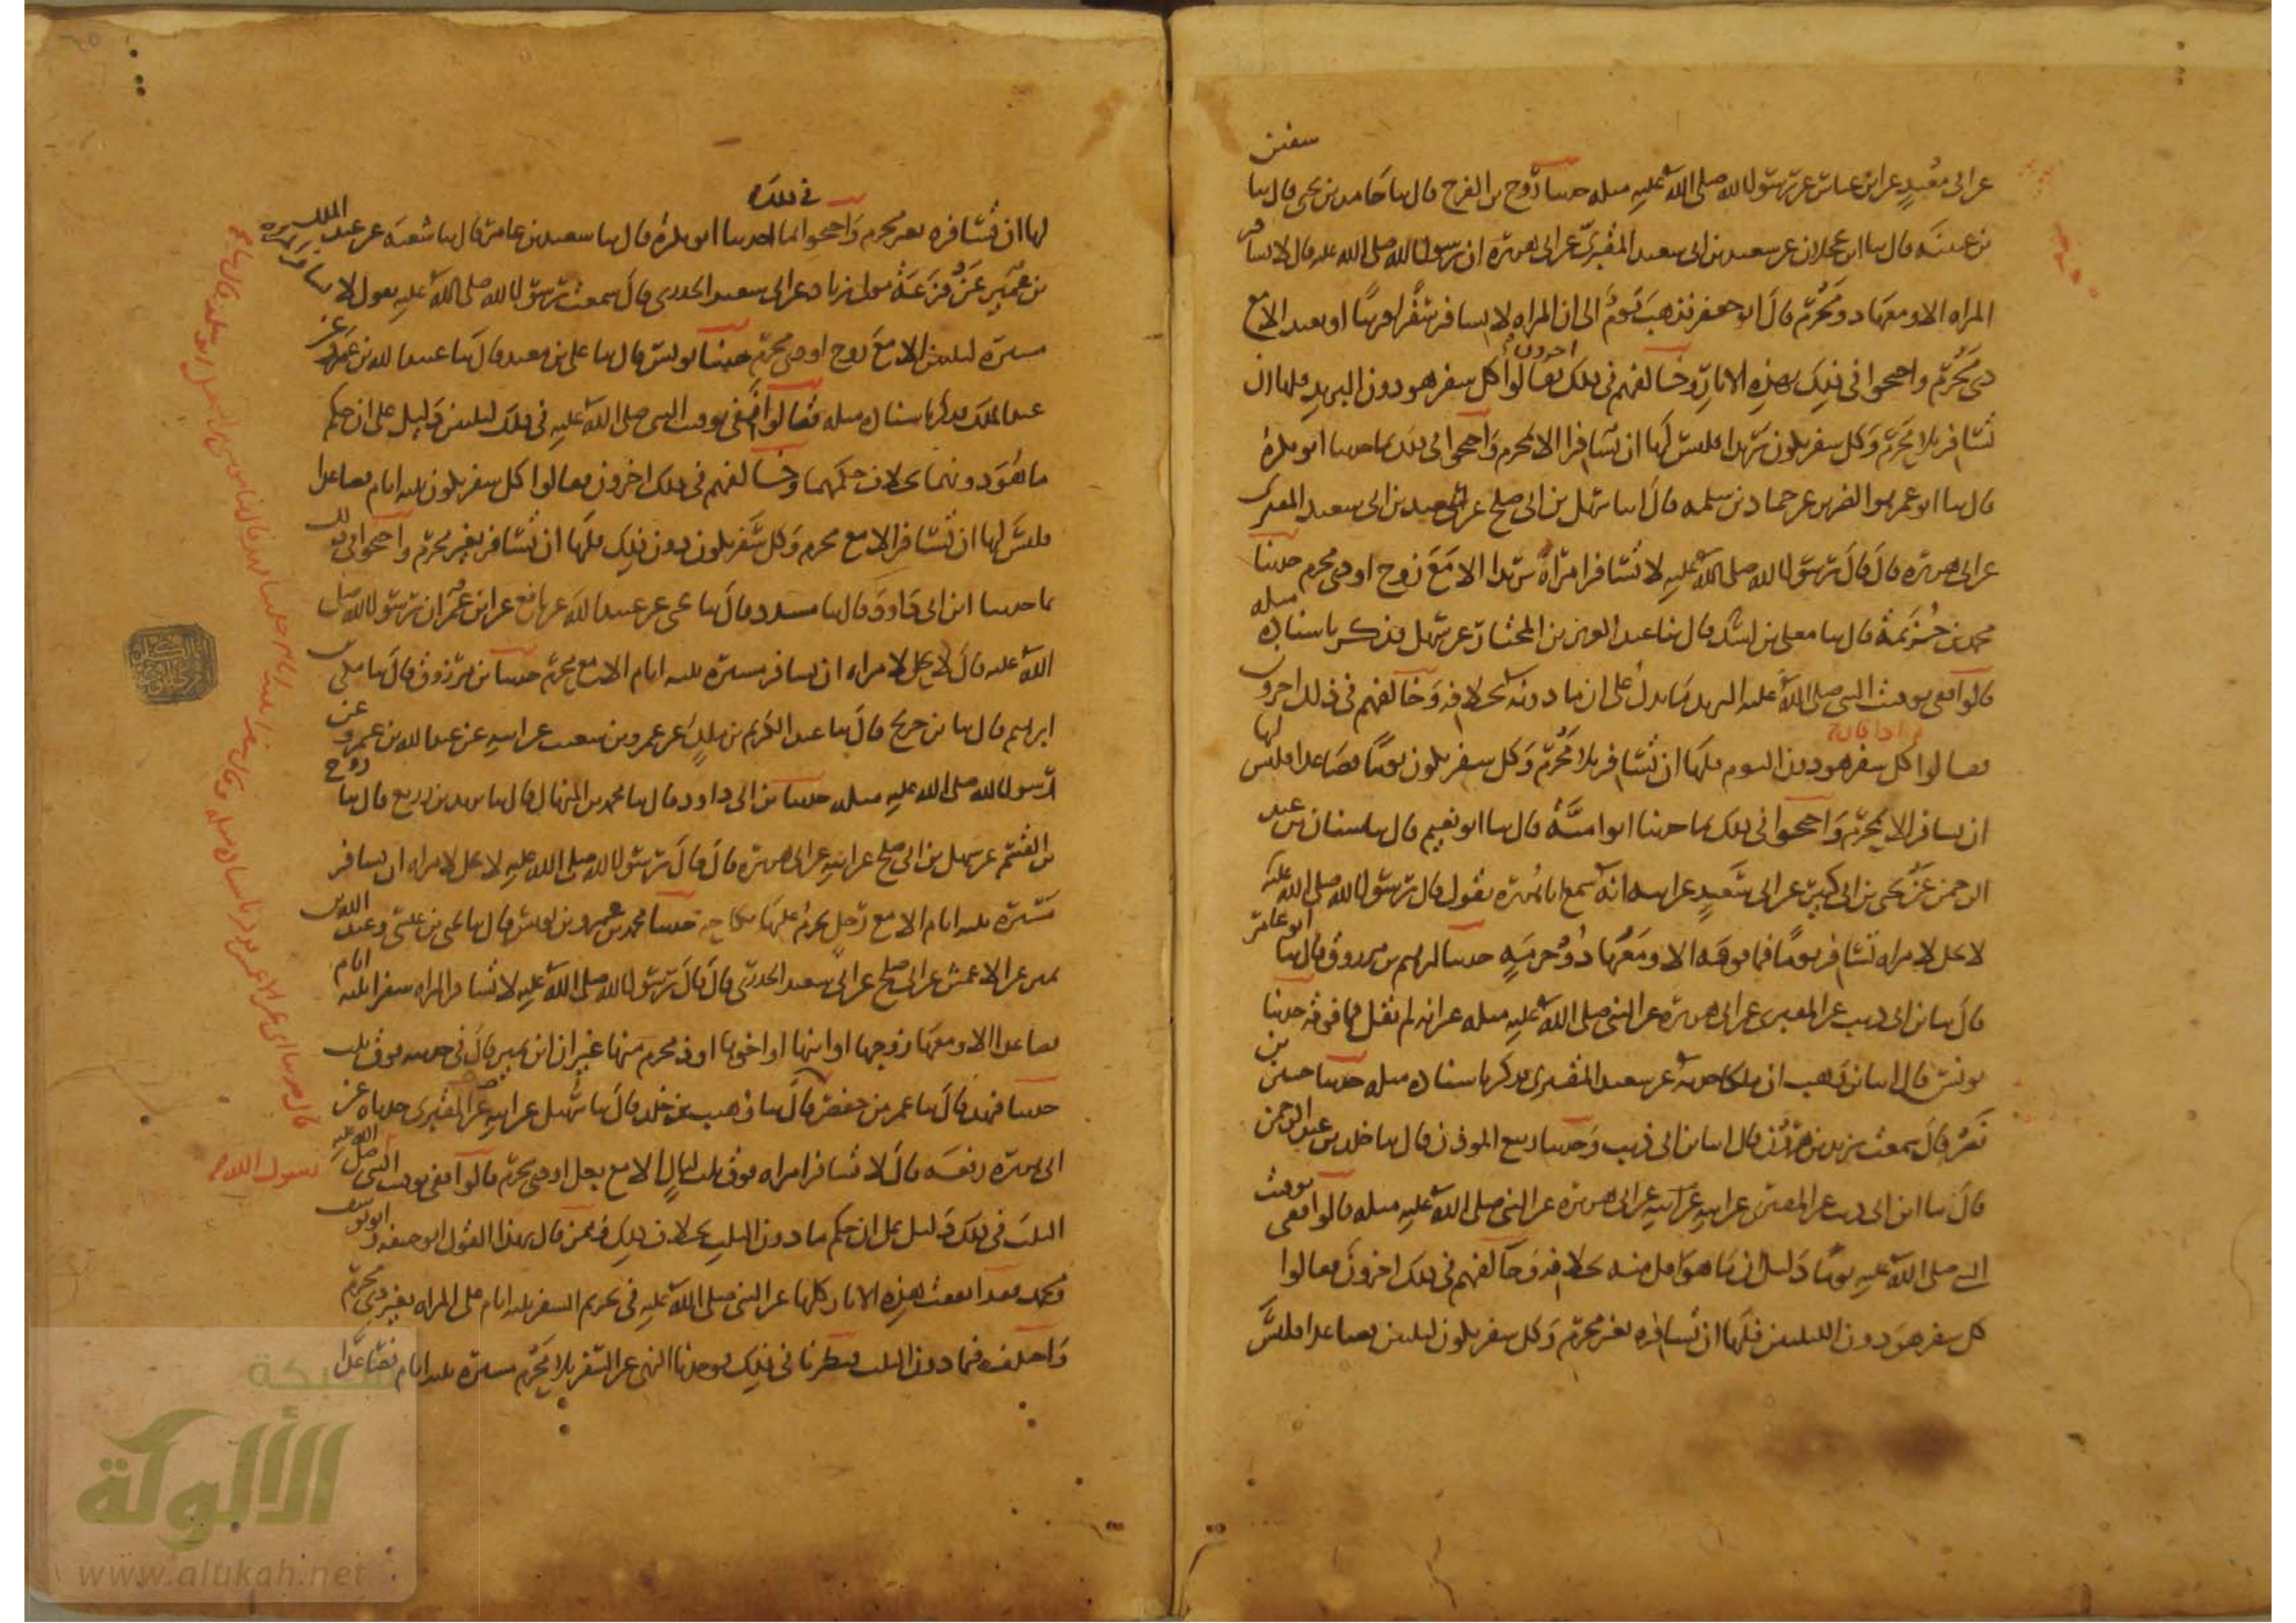 سفين
عن ابى معبد عن ابن عباس عن رسول الله صلى الله عليه مثله حدثنا روح بن الفرج قال ثنا حامد بن يحيى قال ثنا
بن عيينه قال ثنا ابن عجلان عن سعيد بن ابى سعيد المقبرى عن ابى هريره ان رسول الله صلى الله عليه قال لا تسافر
المراه الا ومعها ذو محرم قال ابو جعفر فذهب قوم الى ان المراه لا تسافر سفرا قريبا او بعيدا الا مع
ذى محرم واحتجوا فى ذلك بهذه الاثار وخالفهم فى ذلك اخرون فقالوا كل سفر هو دون البريد فلها ان
تسافر بلا محرم وكل سفر يكون بريدا فليس لها ان تسافر الا بمحرم واحتجوا فى ذلك بما حدثنا ابو بكره
قال ثنا ابو عمر هو الضرير عن حماد بن سلمه قال انا سهيل بن ابى صلح عن سعيد بن ابى سعيد المقبرى
عن ابى هريره قال قال رسول الله صلى الله عليه لا تسافر امراة بريدا الا مع زوج او ذى محرم حدثنا
محمد بن خزيمة قال ثنا معلى بن اسد قال ثنا عبد العزيز بن المختار عن سهيل فذكر باسناده مثله
قالوا ففى توقيت النبى صلى الله عليه البريد ما يدل على ان ما دونه بخلافه وخالفهم فى ذلك اخرون
فقالوا كل سفر هو دون اليوم فلها ان تسافر بلا محرم وكل سفر يكون يوما فصاعدا فليس لها
ان تسافر الا بمحرم واحتجوا فى ذلك بما حدثنا ابو اميّة قال ثنا ابو نعيم قال ثنا شيبان بن عبد
الرحمن عن يحيى بن ابى كثير عن ابى سعيد عن ابيه انه سمع ابا هريره يقول قال رسول الله صلى الله عليه
لا يحل لامراه تسافر يوما فما فوقه الا ومعها ذو حرمه حدثنا ابرهيم بن مرزوق قال ثنا ابو عامر
قال ثنا بن ابى ذيب عن المقبرى عن ابى هريره عن النبى صلى الله عليه مثله غير انه لم يقل فما فوقه حدثنا
يونس قال انا بن وهب ان ملكا حدثه عن سعيد المقبرى فذكر باسناده مثله حدثنا حسين بن
نصر قال سمعت يزيد بن هرون قال انا بن ابى ذيب وحدثنا ربيع الموذن قال ثنا خلد بن عبد الرحمن
قال ثنا ابن ابى ذيب عن المقبرى عن ابيه عن ابى هريره عن النبى صلى الله عليه مثله قالوا ففى توقيت
النبى صلى الله عليه يوما دليل ان ما هو اقل منه بخلافه وخالفهم فى ذلك اخرون فقالوا
كل سفر هو دون الليلتين فلها ان تسافره بغير محرم وكل سفر يكون ليلتين فصاعدا فليس
لها ان تسافره بغير محرم واحتجوا فى ذلك بما حدثنا ابو بكره قال ثنا سعيد بن عامر قال ثنا شعبه عن عبد الملك
بن عمير عن قزعة مولى زياد عن ابى سعيد الخدرى قال سمعت رسول الله صلى الله عليه يقول لا تسافر امراه
مسيره ليلتين الا مع زوج او ذى محرم حدثنا يونس قال ثنا على بن معبد قال ثنا عبيد الله بن عمرو عن
عبد الملك فذكر باسناده مثله فقالوا ففى توقيت النبى صلى الله عليه فى ذلك ليلتين دليل على ان حكم
ما هو دونهما بخلاف حكمهما وخالفهم فى ذلك اخرون فقالوا كل سفر يكون ثلثه ايام فصاعدا
فليس لها ان تسافر الا مع محرم وكل سفر يكون دون ذلك فلها ان تسافر بغير محرم واحتجوا فى ذلك
بما حدثنا ابن ابى داوود قال ثنا مسدد قال ثنا يحيى عن عبيد الله عن نافع عن ابن عمر ان رسول الله صلى
الله عليه قال لا يحل لامراه ان تسافر مسيره ثلثه ايام الا مع محرم حدثنا بن مرزوق قال ثنا مكى بن
ابرهيم قال ثنا بن جريج قال ثنا عبد الكريم بن ملك عن عمرو بن شعيب عن ابيه عن عبد الله بن عمرو عن
رسول الله صلى الله عليه مثله حدثنا بن ابى داود قال ثنا محمد بن المنهال قال ثنا يزيد بن زريع قال ثنا روح
بن القسم عن سهيل بن ابى صلح عن ابيه عن ابى هريره قال قال رسول الله صلى الله عليه لا يحل لامراه ان تسافر
مسيره ثلثه ايام الا مع رجل يحرم عليها نكاحه حدثنا محمد بن عمرو بن يونس قال ثنا يحيى بن عيسى وعبد الله بن
نمير عن الاعمش عن ابى صلح عن ابى سعيد الخدرى قال قال رسول الله صلى الله عليه لا تسافر المراه سفرا ثلثه ايام
فصاعدا الا ومعها زوجها او ابنها او اخوها او ذو محرم منها غير ان ابن نمير قال فى حديثه فوق ثلث
حدثنا فهد قال ثنا عمر بن حفص قال ثنا وهيب بن خلد قال ثنا سهيل عن ابيه عن المقبرى حدثاه عن
ابى هريره رفعه قال لا تسافر امراه فوق ثلث ليال الا مع بعل او ذى محرم قالوا ففى توقيت النبى صلى الله عليه
الثلث فى ذلك دليل على ان حكم ما دون الثلث بخلاف ذلك فممن قال بهذا القول ابو حنيفه وابو يوسف
ومحمد فقد اتفقت هذه الاثار كلها عن النبى صلى الله عليه فى تحريم السفر ثلثه ايام على المراه بغير ذى محرم
واختلفت فيما دون الثلث فنظرنا فى ذلك فوجدنا النهى عن السفر بلا محرم مسيره ثلثه ايام فصاعدا
رسول الله
شبكة
الألوكة
www.alukah.net